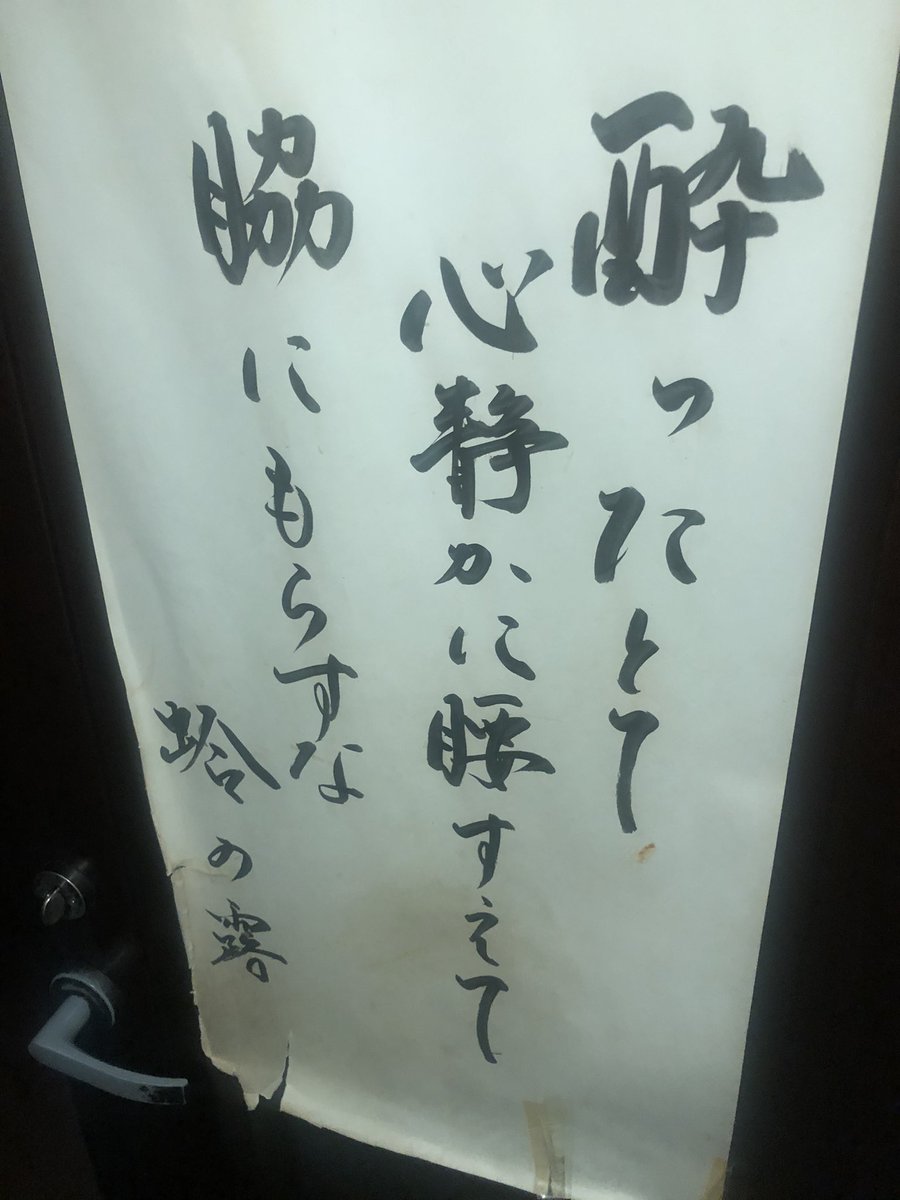 酔ったとて
心静かに腰すえて
脇にもらすな
蛤の露